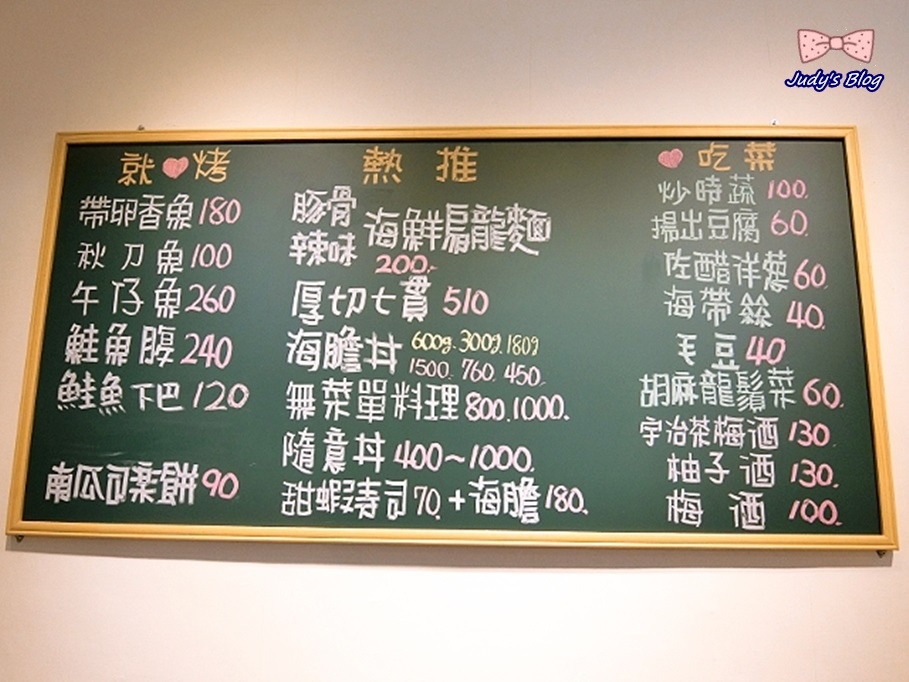 Judy's Blog
就❤烤
帶卵香魚180
秋刀魚100
午仔魚260
鮭魚腹240
鮭魚下巴120
南瓜可樂餅90
熱推
豚骨
辣味
海鮮烏龍麵
200.
厚切七貫510
海膽丼 600g.300g.180g
1500. 760. 450.
無菜單料理800.1000.
隨意丼400~1000.
甜蝦壽司70.+海膽180.
❤吃菜
炒時蔬100.
揚出豆腐60.
佐醋洋蔥60.
海帶絲40.
毛豆40
胡麻龍鬚菜60.
宇治茶梅酒130.
柚子酒130.
梅酒100.